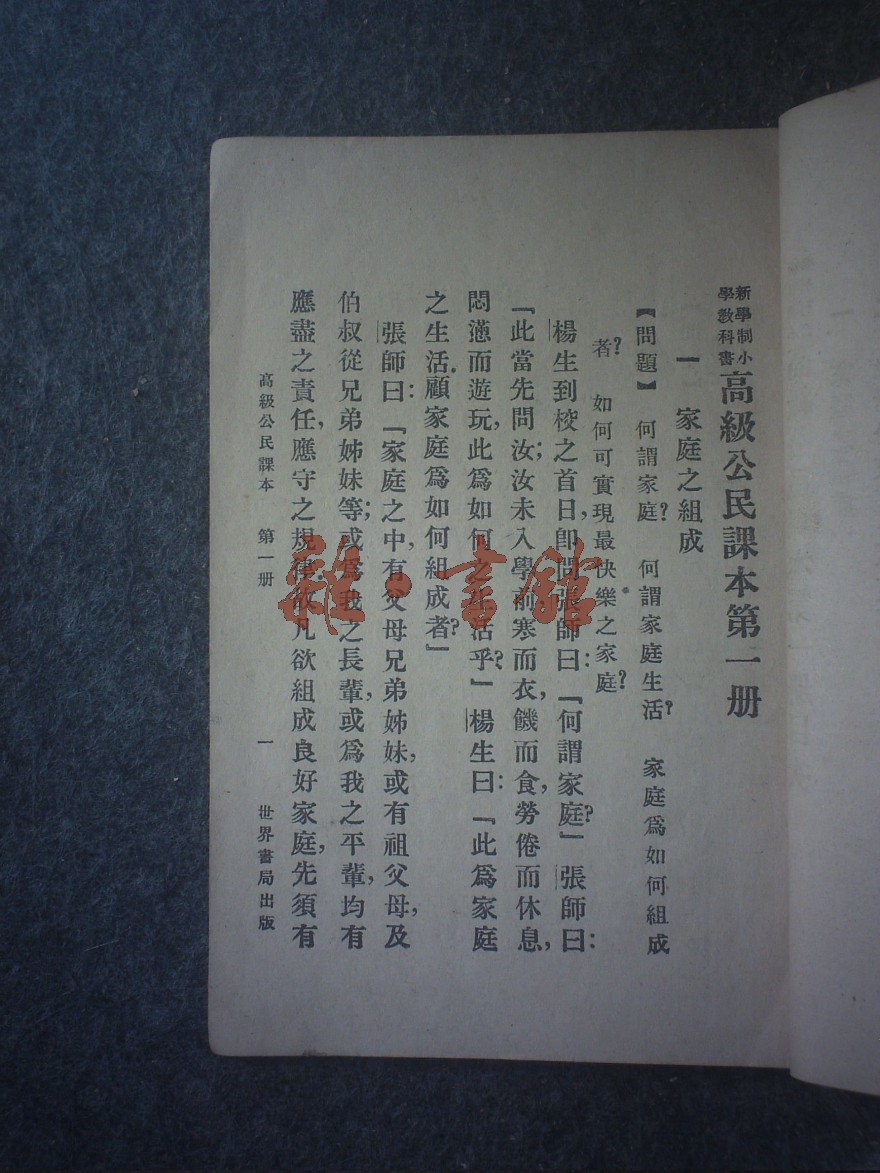 新學制小學教科書
高級公民課本第一册
一 家庭之組成
【問題】 何謂家庭? 何謂家庭生活? 家庭爲如何組成
者? 如何可實現最快樂之家庭?
楊生到校之首日,卽問張師曰:「何謂家庭?」張師曰:
「此當先問汝;汝未入學前寒而衣,饑而食,勞倦而休息,
悶懣而遊玩,此爲如何之生活乎?」楊生曰:「此爲家庭
之生活.顧家庭爲如何組成者?」
張師曰:「家庭之中,有父母兄弟姊妹,或有祖父母,及
伯叔從兄弟姊妹等;或爲我之長輩,或爲我之平輩,均有
應盡之責任,應守之規律.故凡欲組成良好家庭,先須有
高級公民課本 第一册 一 世界書局出版
雜·書館